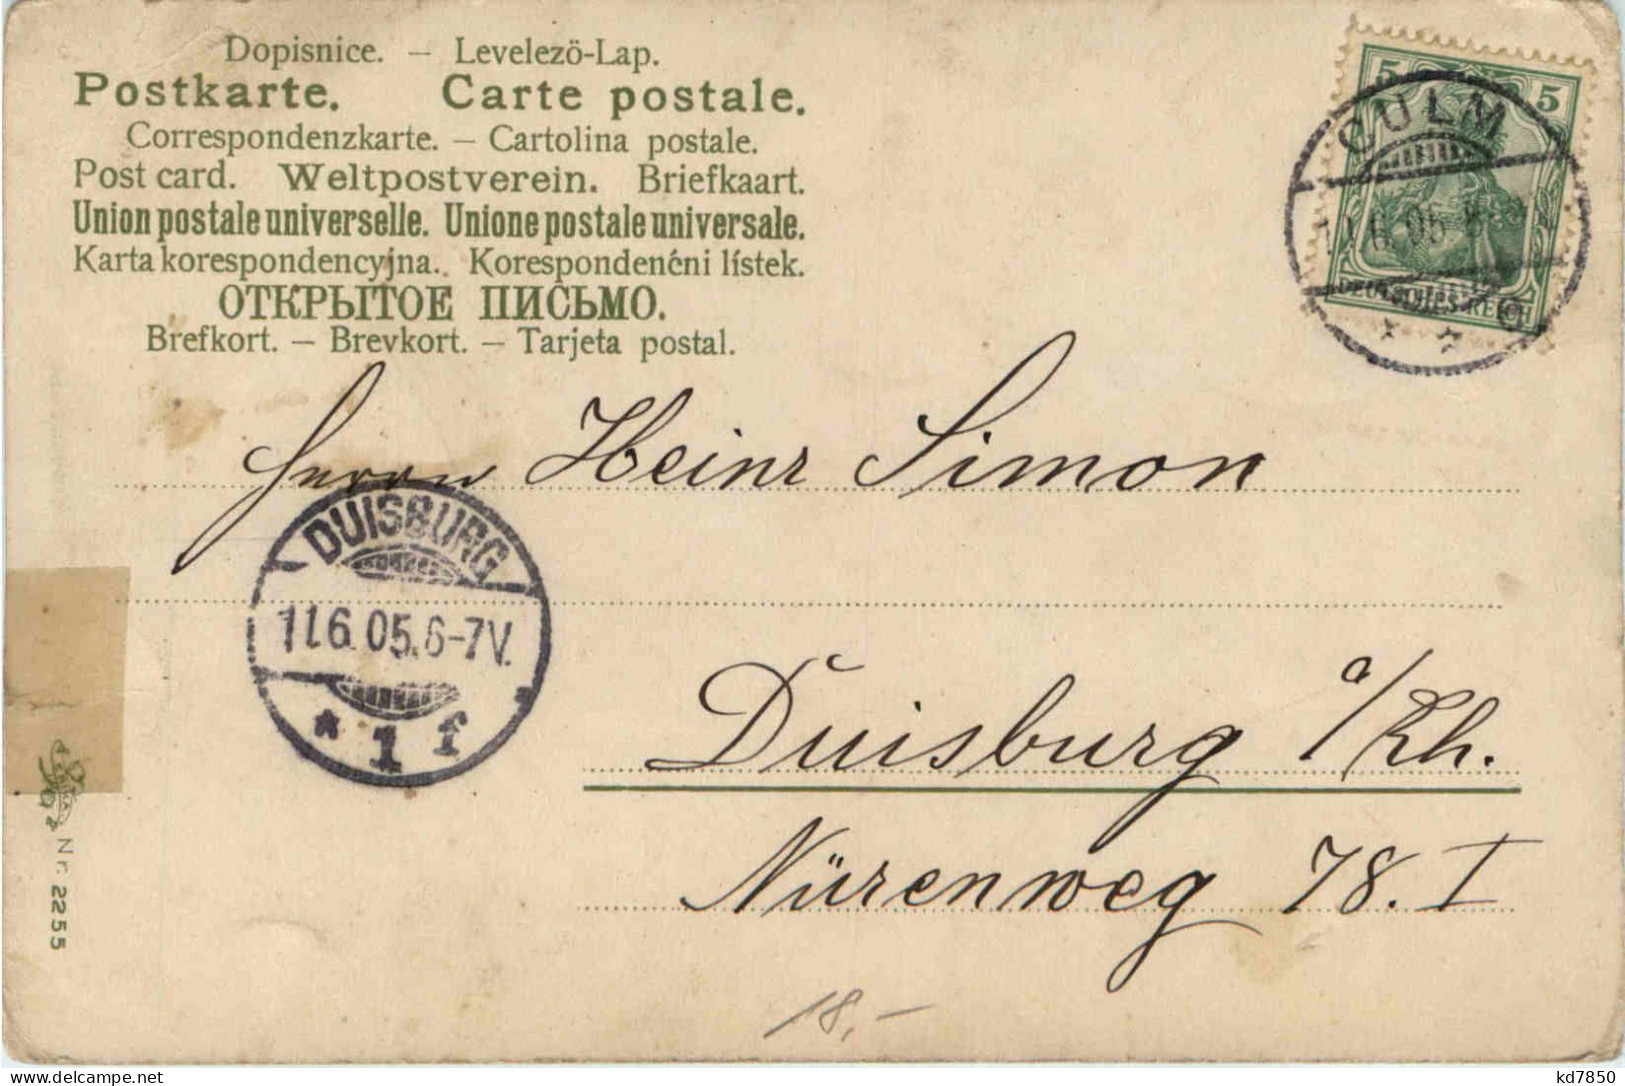 Dopisnice. — Levelezö-Lap.
Postkarte. Carte postale.
Correspondenzkarte. — Cartolina postale.
Post card. Weltpostverein. Briefkaart.
Union postale universelle. Unione postale universale.
Karta korespondencyjna. Korespondenčni lístek.
ОТКРЫТОЕ ПИСЬМО.
Brefkort. — Brevkort. — Tarjeta postal.
5 5
CULM
6. 05.
DEUTSCHES REICH
Herrn Heinr Simon
DUISBURG
11.6.05.6-7V.
* 1 f *
Duisburg a/Rh.
Nürenweg 78. I
Nr. 2255
18,-
kd7850